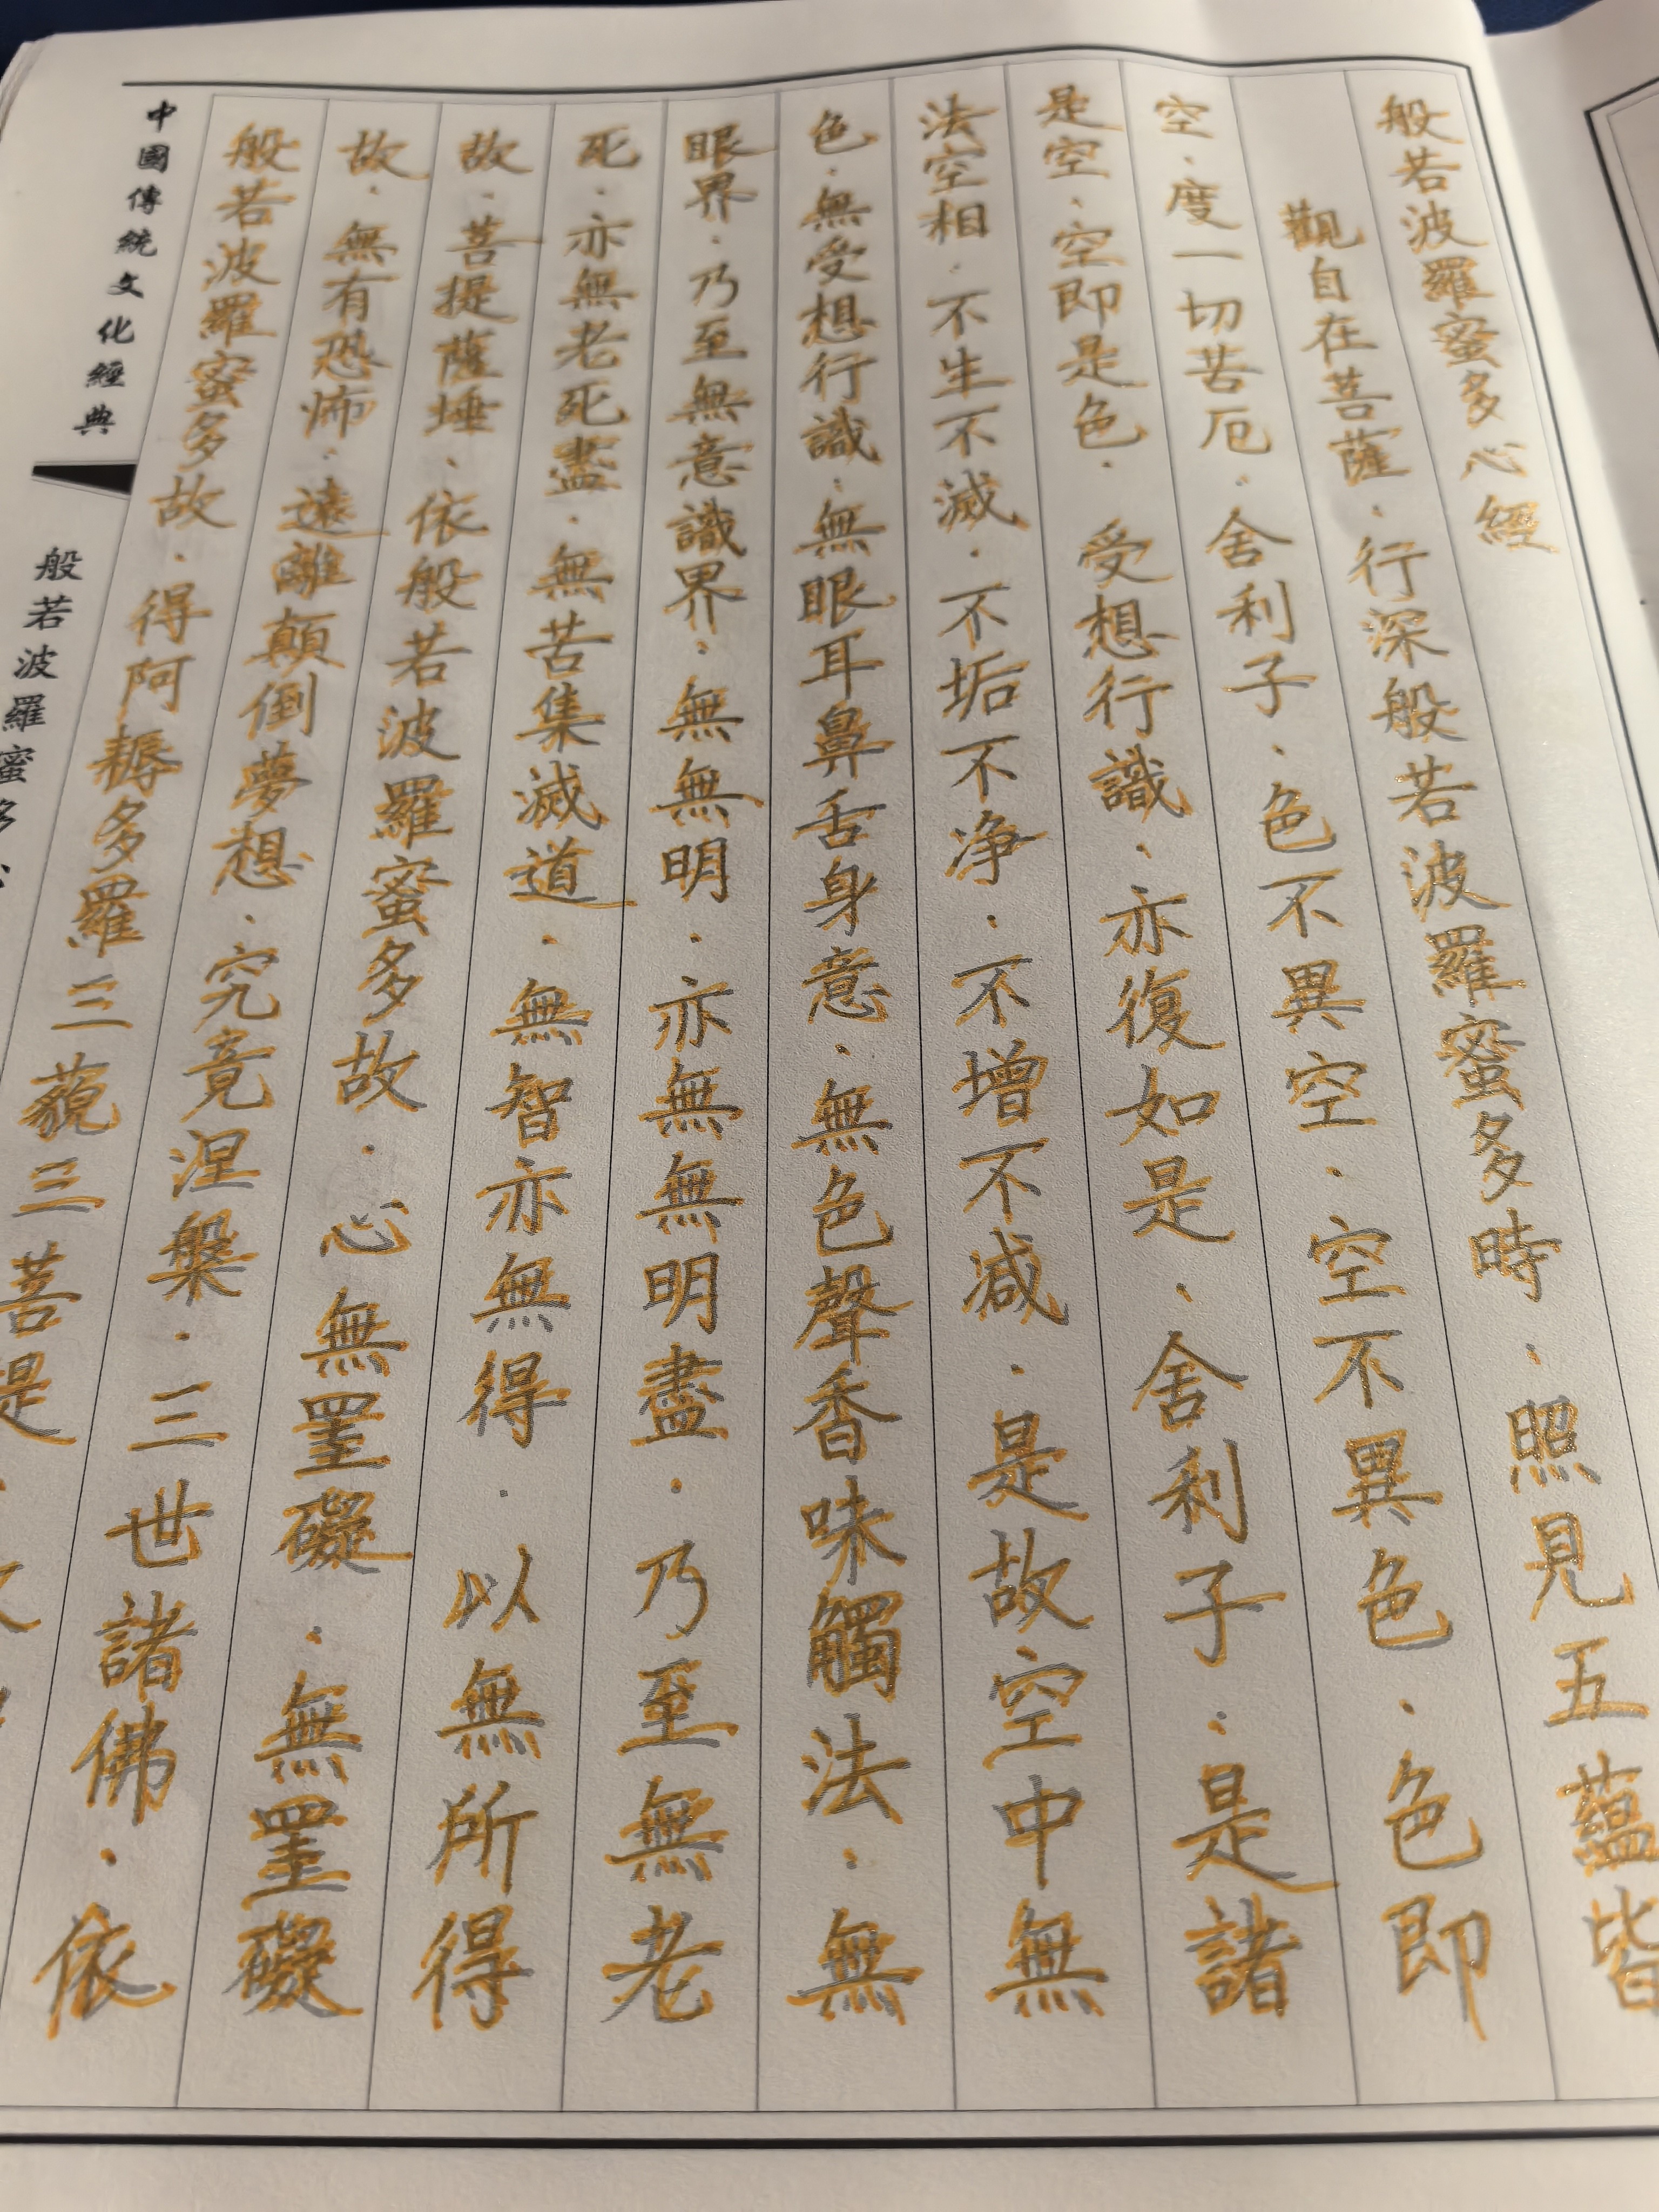 般若波羅蜜多心經
觀自在菩薩．行深般若波羅蜜多時．照見五蘊皆
空．度一切苦厄．舍利子．色不異空．空不異色．色即
是空．空即是色．受想行識．亦復如是．舍利子．是諸
法空相．不生不滅．不垢不净．不增不减．是故空中無
色．無受想行識．無眼耳鼻舌身意．無色聲香味觸法．無
眼界．乃至無意識界．無無明．亦無無明盡．乃至無老
死．亦無老死盡．無苦集滅道．無智亦無得．以無所得
故．菩提薩埵．依般若波羅蜜多故．心無罣礙．無罣礙
故．無有恐怖．遠離顛倒夢想．究竟涅槃．三世諸佛．依
般若波羅蜜多故．得阿耨多羅三藐三菩提
中國傳統文化經典
般若波羅蜜多